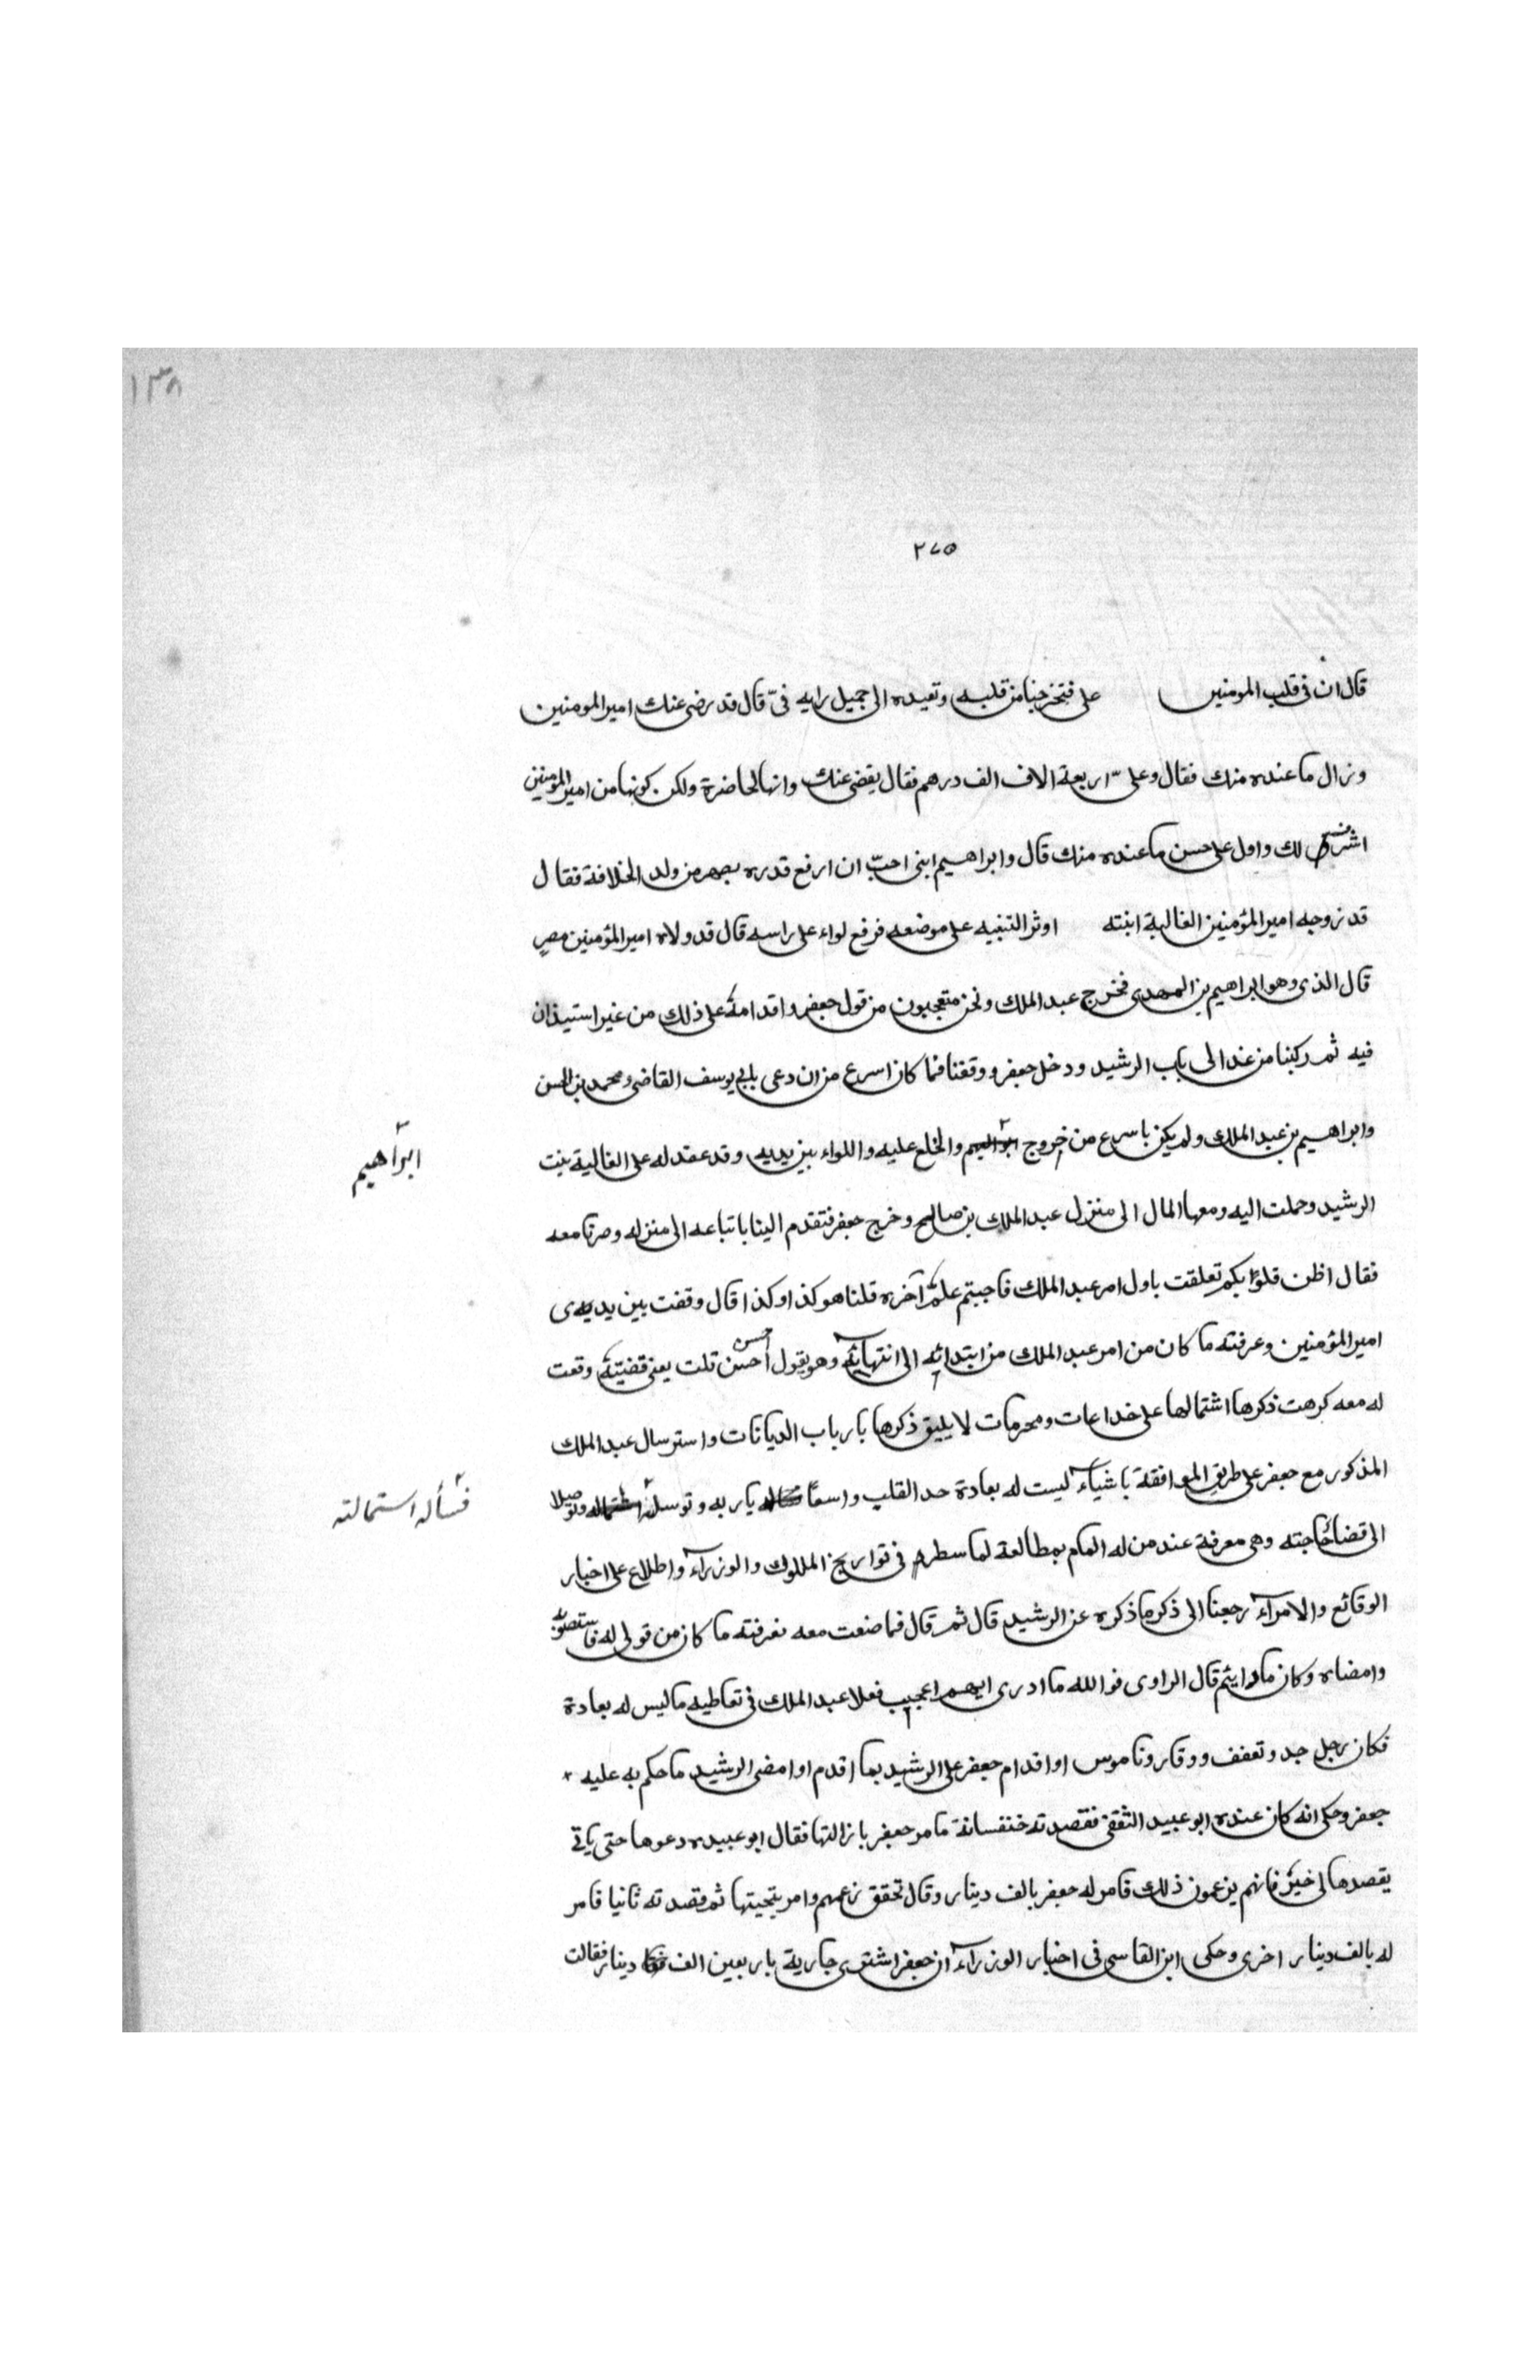 ١٣٨
٢٧٥
قال ان فى قلب المومنين على فتخرجنا من قلبه وتعيده الى جميل رايه فىّ قال قد رضى عنك امير المومنين
وزال ما عنده منك فقال وعلىّ اربعة الاف الف درهم فقال يقضى عنك وانها لحاضرة ولكن كونها من امير المؤمنين
اشرف لك واول على حسن ما عنده منك قال وابراهيم ابنى احبّ ان ارفع قدره بصهر من ولد الخلافة فقال
قد زوجه امير المؤمنين الغالية ابنته اوثر التنبيه على موضعه فرفع لواء على راسه قال قد ولاه امير المؤمنين مصر
قال الذى وهو ابراهيم بن المهدى فخرج عبد الملك ونحن متعجبون من قول جعفر واقدامه على ذلك من غير استيذان
فيه ثم ركبنا من غد الى باب الرشيد ودخل جعفر ووقفنا فما كان اسرع من ان دعى بابى يوسف القاضى ومحمد بن الحسن
وابراهيم بن عبد الملك ولم يكن باسرع من خروج ابراهيم والخلع عليه واللواء بين يديه وقد عقد له على الغالية بنت
ابراهيم
الرشيد وحملت اليه ومعها المال الى منزل عبد الملك بن صالح وخرج جعفر فتقدم الينا باتباعه الى منزله وصرنا معه
فقال اظن قلوبكم تعلقت باول امر عبد الملك فاحبتم علم آخره قلنا هو كذا وكذا قال وقفت بين يدى
امير المؤمنين وعرفته ما كان من امر عبد الملك من ابتدائه الى انتهائه وهو يقول احسن احسن قلت يعنى قضيته وقعت
له معه كرهت ذكرها اشتمالها على خداعات ومحرمات لا يليق ذكرها بارباب الديانات واسترسال عبد الملك
المذكور مع جعفر على طريق الموافقة باشياء ليست له بعادة حد القلب واسعا يا ربه وتوسله وتوصلا
فسأله استمالته
الى قضا حاجته وهى معرفة عند من له المام بمطالعة لما سطره فى تواريخ الملوك والوزراء واطلاع على اخبار
الوقائع والامرآء رجعنا الى ذكر ما ذكره عن الرشيد قال ثم قال فما صنعت معه فعرفته ما كان من قولى له فاستصوبه
وامضاه وكان ما رايتم قال الراوى فوالله ما ادرى ايهم اعجب فعلا عبد الملك فى تعاطيه ما ليس له بعادة
فكان رجل جد وتعفف ووقار وناموس او اقدام جعفر على الرشيد بما اقدم او امضى الرشيد ما حكم به عليه
جعفر وحكى انه كان عنده ابو عبيد الثقفى فقصدته خنفسانة فامر جعفر بازالتها فقال ابو عبيده دعوها حتى ياتى
يقصدها لى خير فانهم يزعمون ذلك فامر له جعفر بالف دينار وقال تحقق زعمهم وامر بتحيتها ثم قصدته ثانيا فامر
له بالف دينار اخرى وحكى ابن القاسى فى اخبار الوزرآء ان جعفر اشترى جارية باربعين الف دينار فقالت